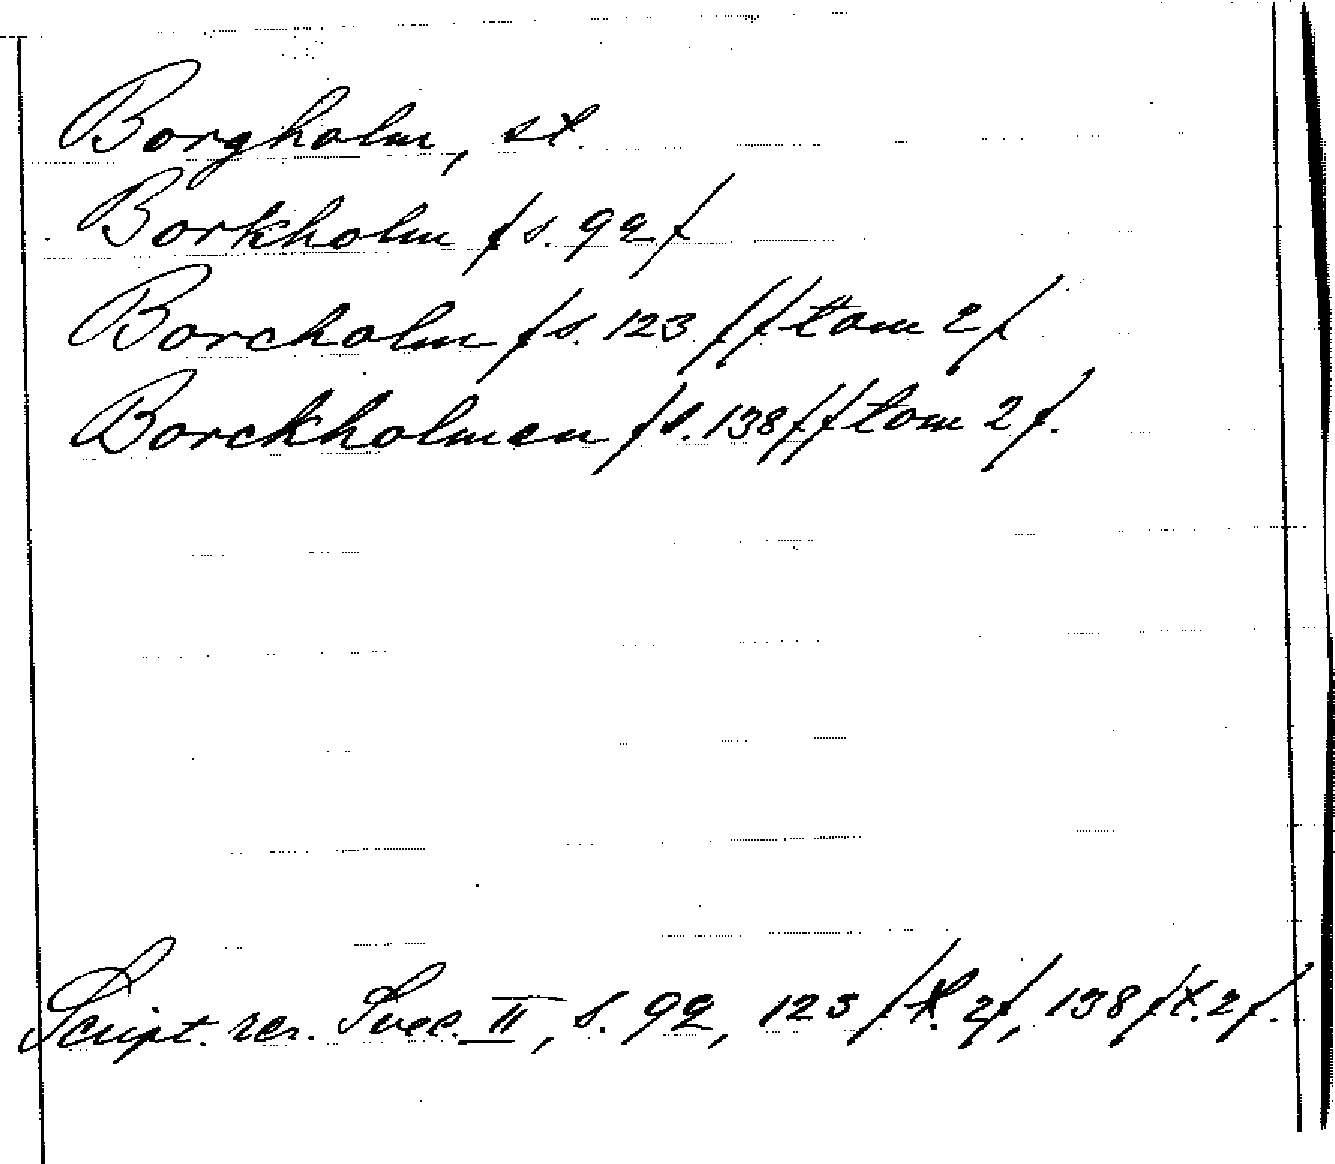 Borgholm, st.
Borkholm /s. 92/
Borcholm /s. 123 //tom 2/
Borckholmen /s. 138//tom 2/.
Script. rer. Svec. II, s. 92, 123 /t. 2/, 138/t. 2/.